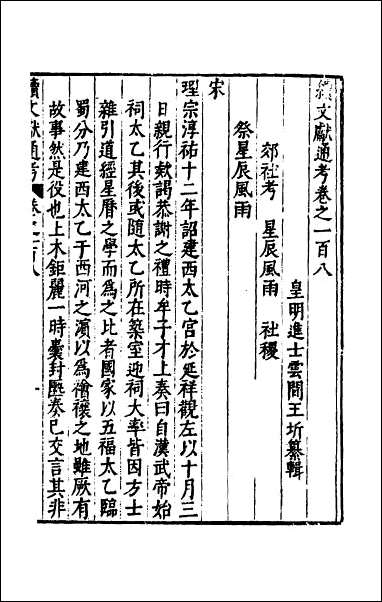 續文獻通考卷之一百八
皇明進士雲間王圻纂輯
郊社考 星辰風雨 社稷
祭星辰風雨
宋
理宗淳祐十二年詔建西太乙宮於延祥觀左以十月三
日親行欵謁恭謝之禮時牟子才上奏曰自漢武帝始
祠太乙其後或隨太乙所在築室迎祠大率皆因方士
雜引道經星曆之學而為之比者國家以五福太乙臨
蜀分乃建西太乙于西河之濱以為禬禳之地雖厥有
故事然是役也土木鉅麗一時囊封匭奏已交言其非
續文獻通考 卷之一百八 一